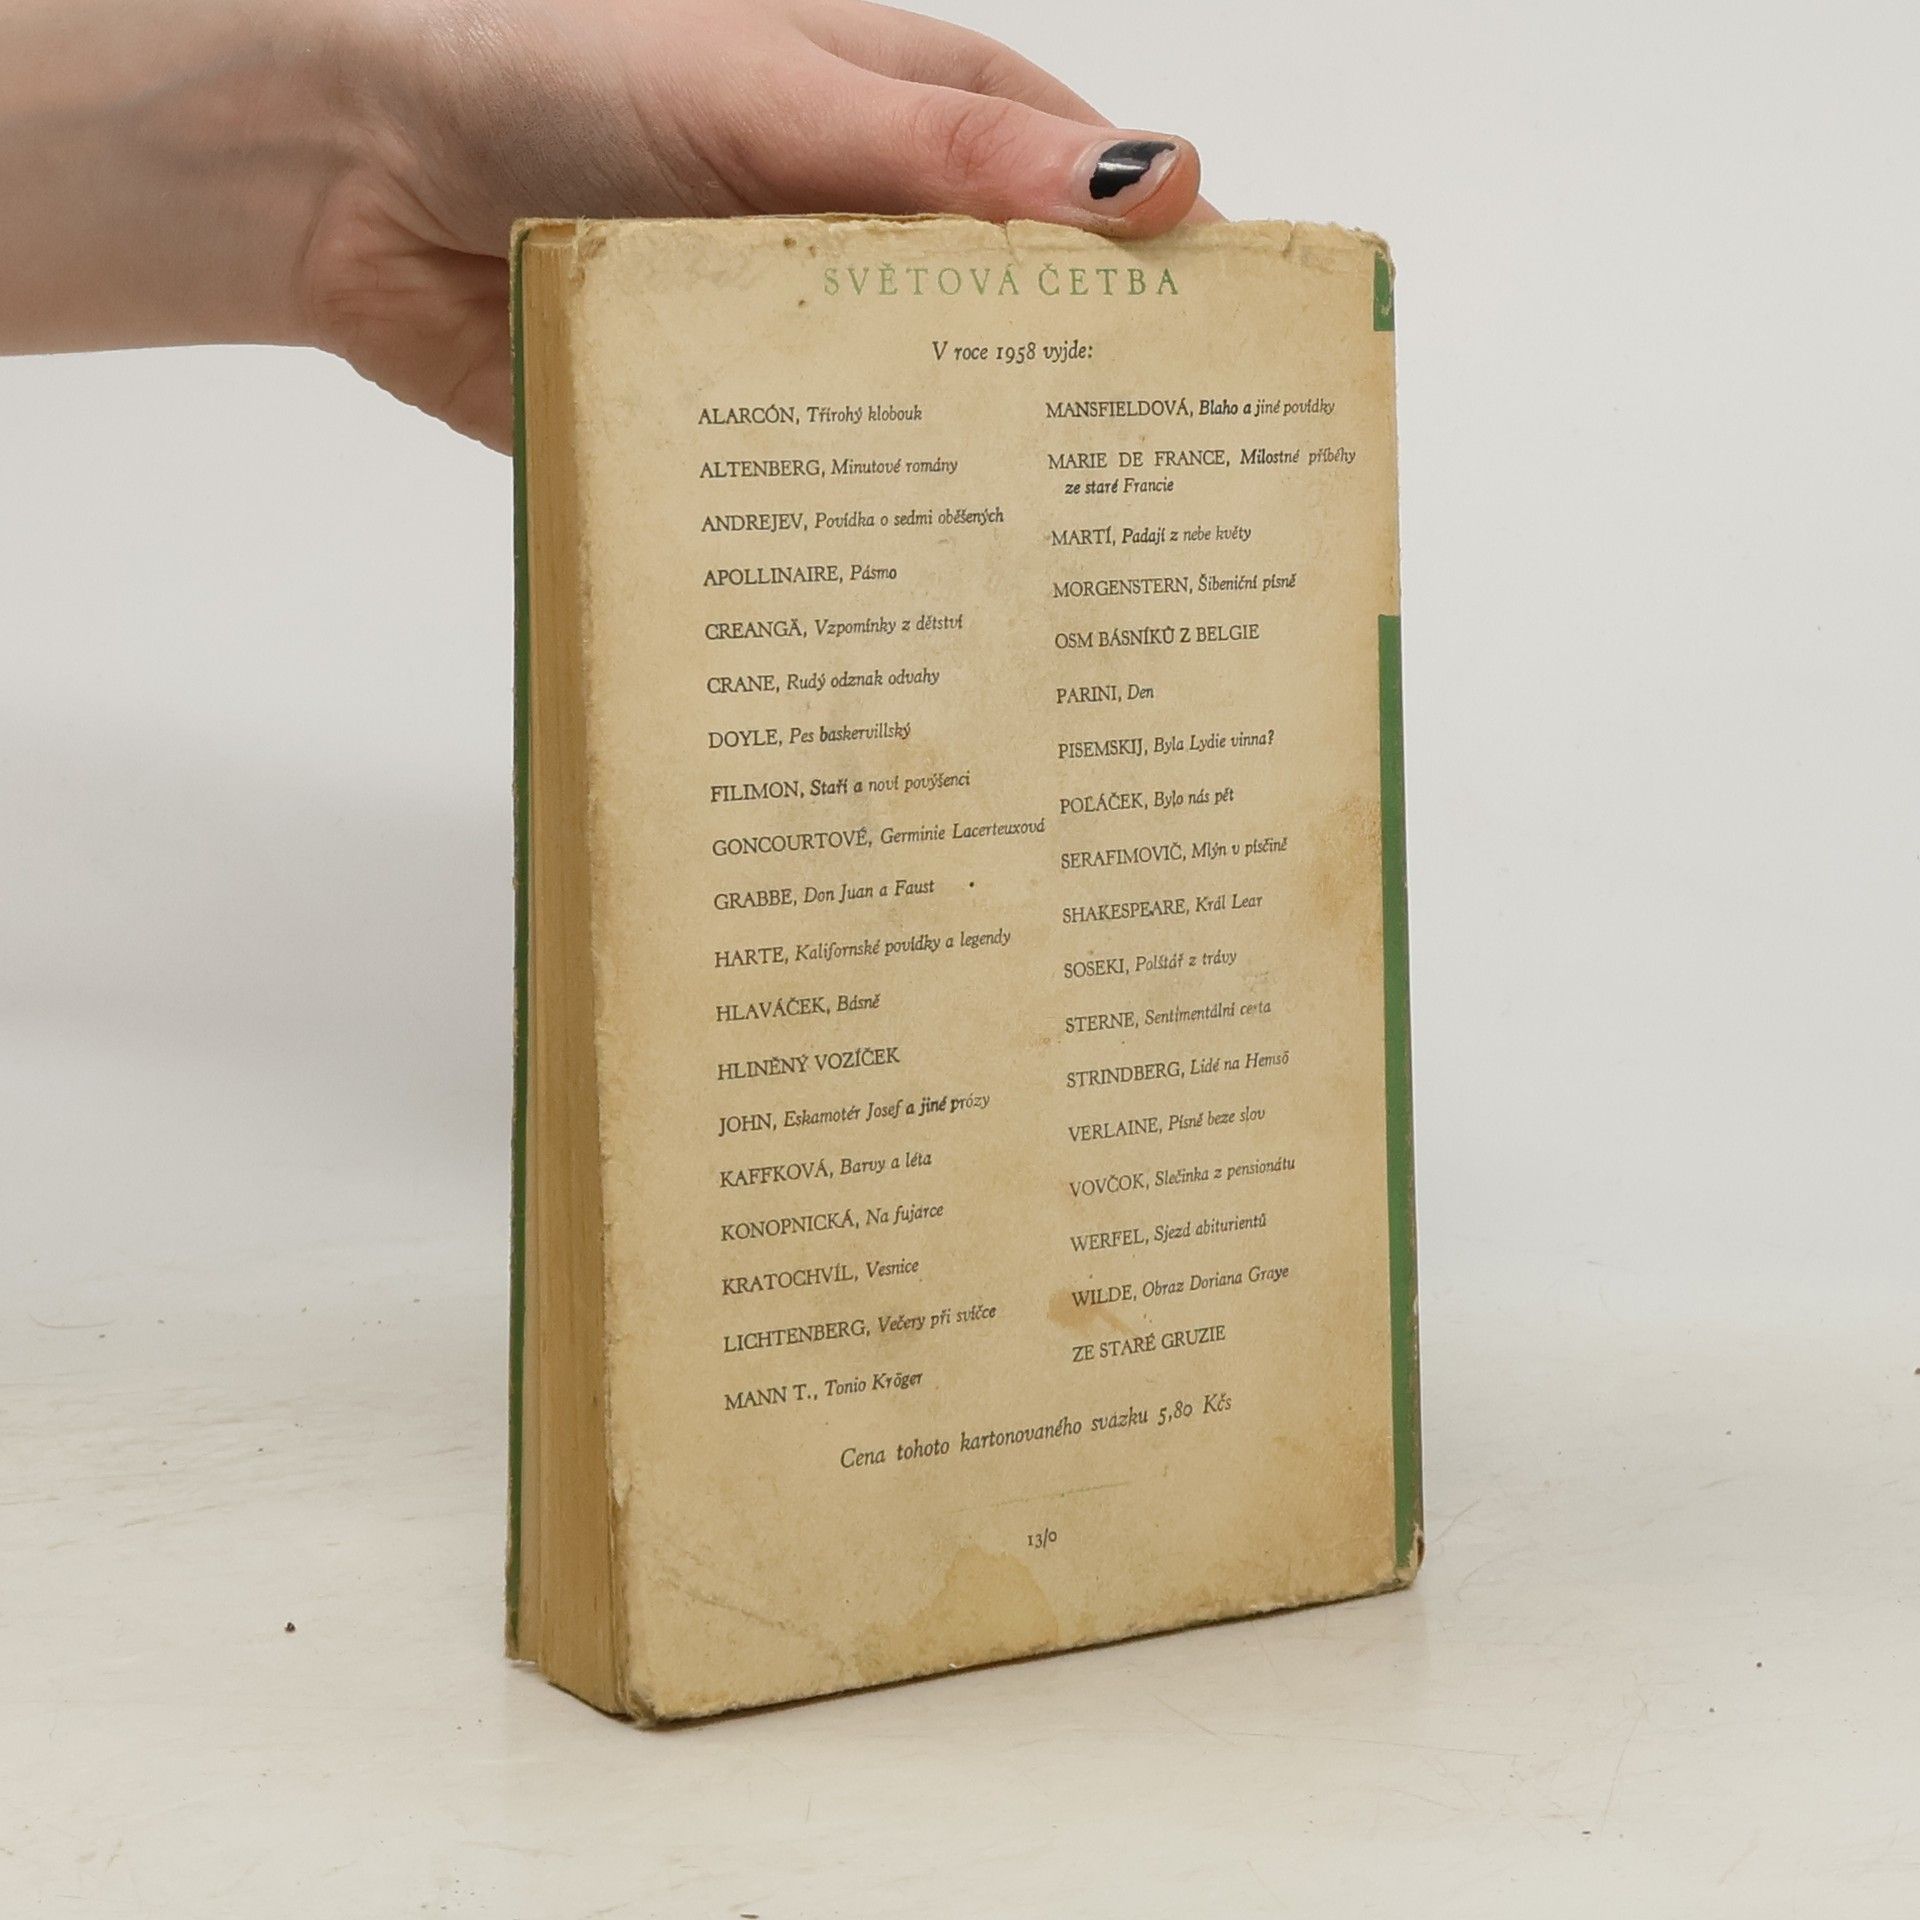 SVĚTOVÁ ČETBA
V roce 1958 vyjde:
ALARCÓN, Třírohý klobouk
ALTENBERG, Minutové romány
ANDREJEV, Povídka o sedmi oběšených
APOLLINAIRE, Pásmo
CREANGĂ, Vzpomínky z dětství
CRANE, Rudý odznak odvahy
DOYLE, Pes baskervillský
FILIMON, Staří a noví povýšenci
GONCOURTOVÉ, Germinie Lacerteuxová
GRABBE, Don Juan a Faust
HARTE, Kalifornské povídky a legendy
HLAVÁČEK, Básně
HLINĚNÝ VOZÍČEK
JOHN, Eskamotér Josef a jiné prózy
KAFFKOVÁ, Barvy a léta
KONOPNICKÁ, Na fujarce
KRATOCHVÍL, Vesnice
LICHTENBERG, Večery při svíčce
MANN T., Tonio Kröger
MANSFIELDOVÁ, Blaho a jiné povídky
MARIE DE FRANCE, Milostné příběhy
ze staré Francie
MARTÍ, Padají z nebe květy
MORGENSTERN, Šibeniční písně
OSM BÁSNÍKŮ Z BELGIE
PARINI, Den
PISEMSKIJ, Byla Lydie vinna?
POLÁČEK, Bylo nás pět
SERAFIMOVIČ, Mlýn v písčině
SHAKESPEARE, Král Lear
SOSEKI, Polštář z trávy
STERNE, Sentimentální cesta
STRINDBERG, Lidé na Hemsö
VERLAINE, Písně beze slov
VOVČOK, Slečinka z pensionátu
WERFEL, Sjezd abiturientů
WILDE, Obraz Doriana Graye
ZE STARÉ GRUZIE
Cena tohoto kartonovaného svazku 5,80 Kčs
13/0